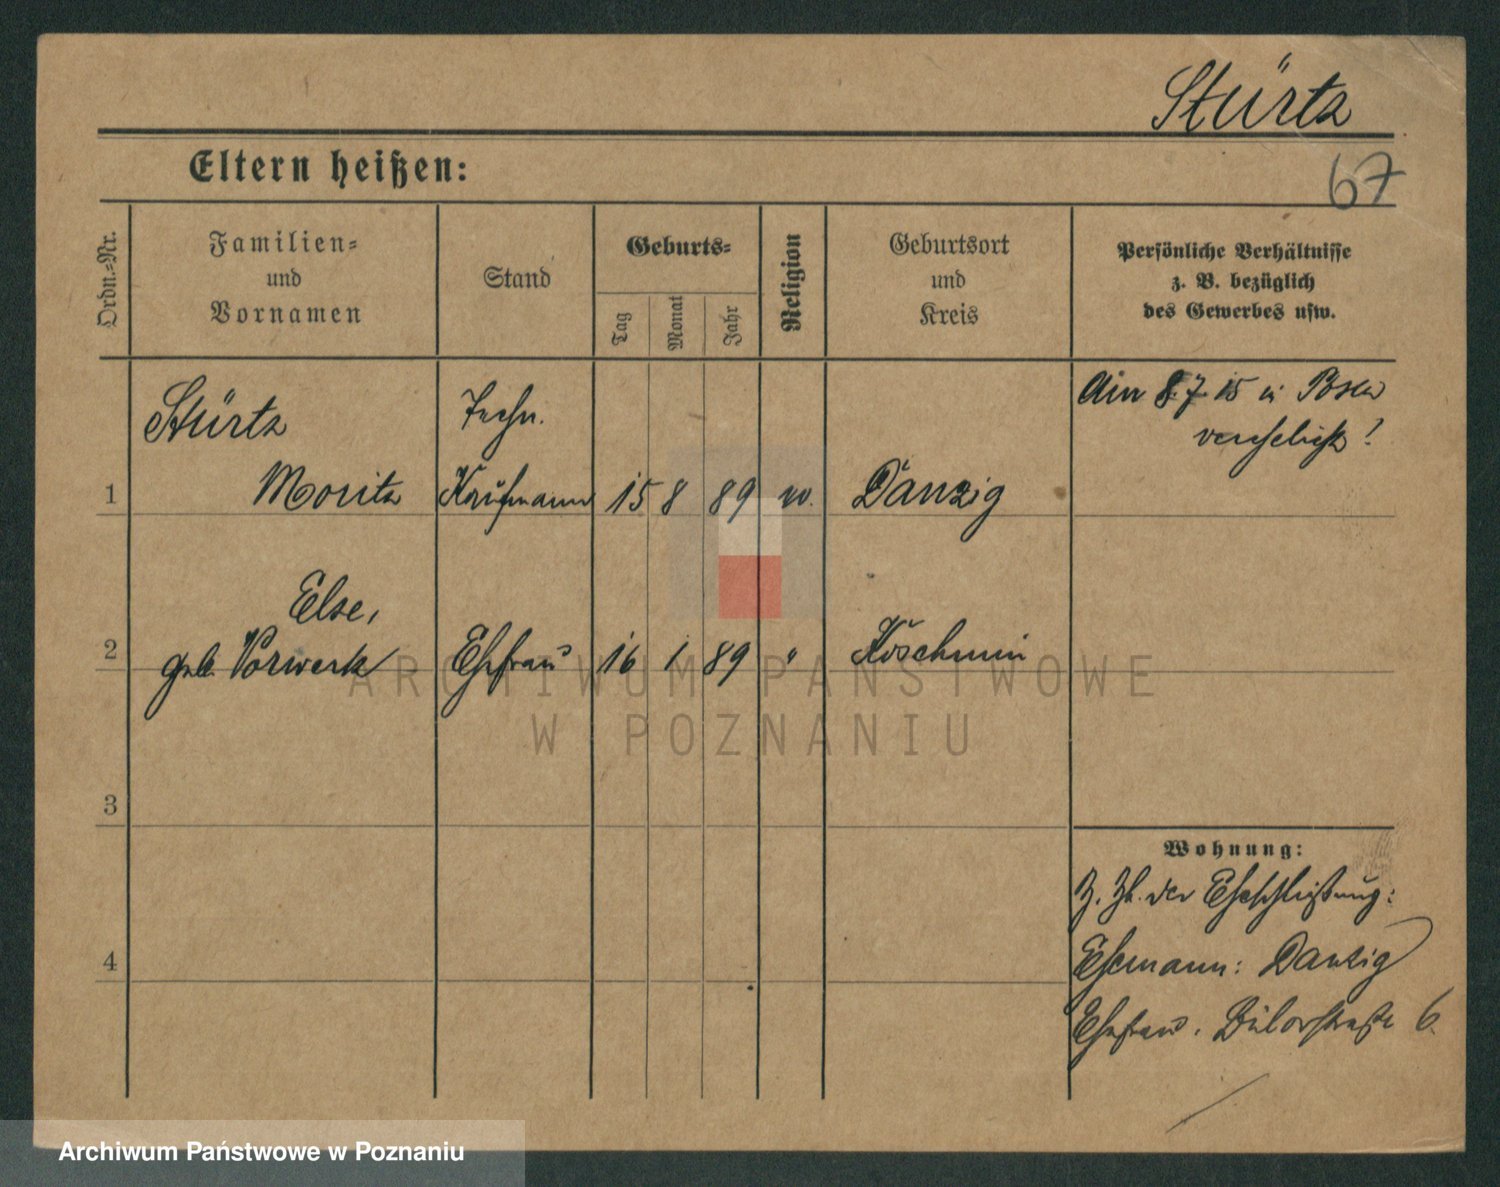 Stürtz
Eltern heißen:
67
Ordn.=Nr.
Familien=
und
Vornamen
Stand
Geburts=
Tag
Monat
Jahr
Religion
Geburtsort
und
Kreis
Persönliche Verhältnisse
z. B. bezüglich
des Gewerbes usw.
Stürtz
Moritz
Techn.
Kaufmann
1
15 8 89
Danzig
Am 8. 7. 15 in Posen
verehelicht!
Else,
2
geb. Vorwerk
Ehefrau
16 1 89 "
Koschmin
ARCHIWUM PAŃSTWOWE
W POZNANIU
3
4
Wohnung:
Z. Zt. der Eheschließung:
Ehemann: Danzig
Ehefrau: Bülowstraße 6.
Archiwum Państwowe w Poznaniu